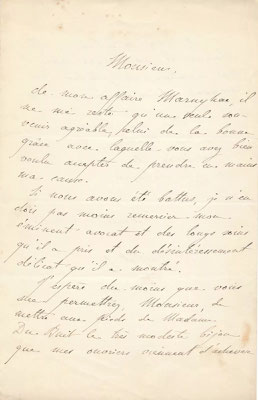 Monsieur.
de mon affaire Marnyhac, il
ne me reste qu'un seul sou-
venir agréable, celui de la bonne
grâce avec laquelle vous avez bien
voulu accepter de prendre en mains
ma cause.
Si nous avons été battus, je n'en
dois pas moins remercier mon
éminent avocat et des longs soins
qu'il a pris et du désintéressement
délicat qu'il a montré.
J'espère du moins que vous
me permettrez Monsieur de
mettre aux pieds de Madame
Du Buit le très modeste bijou
que mes ouvriers viennent d'achever